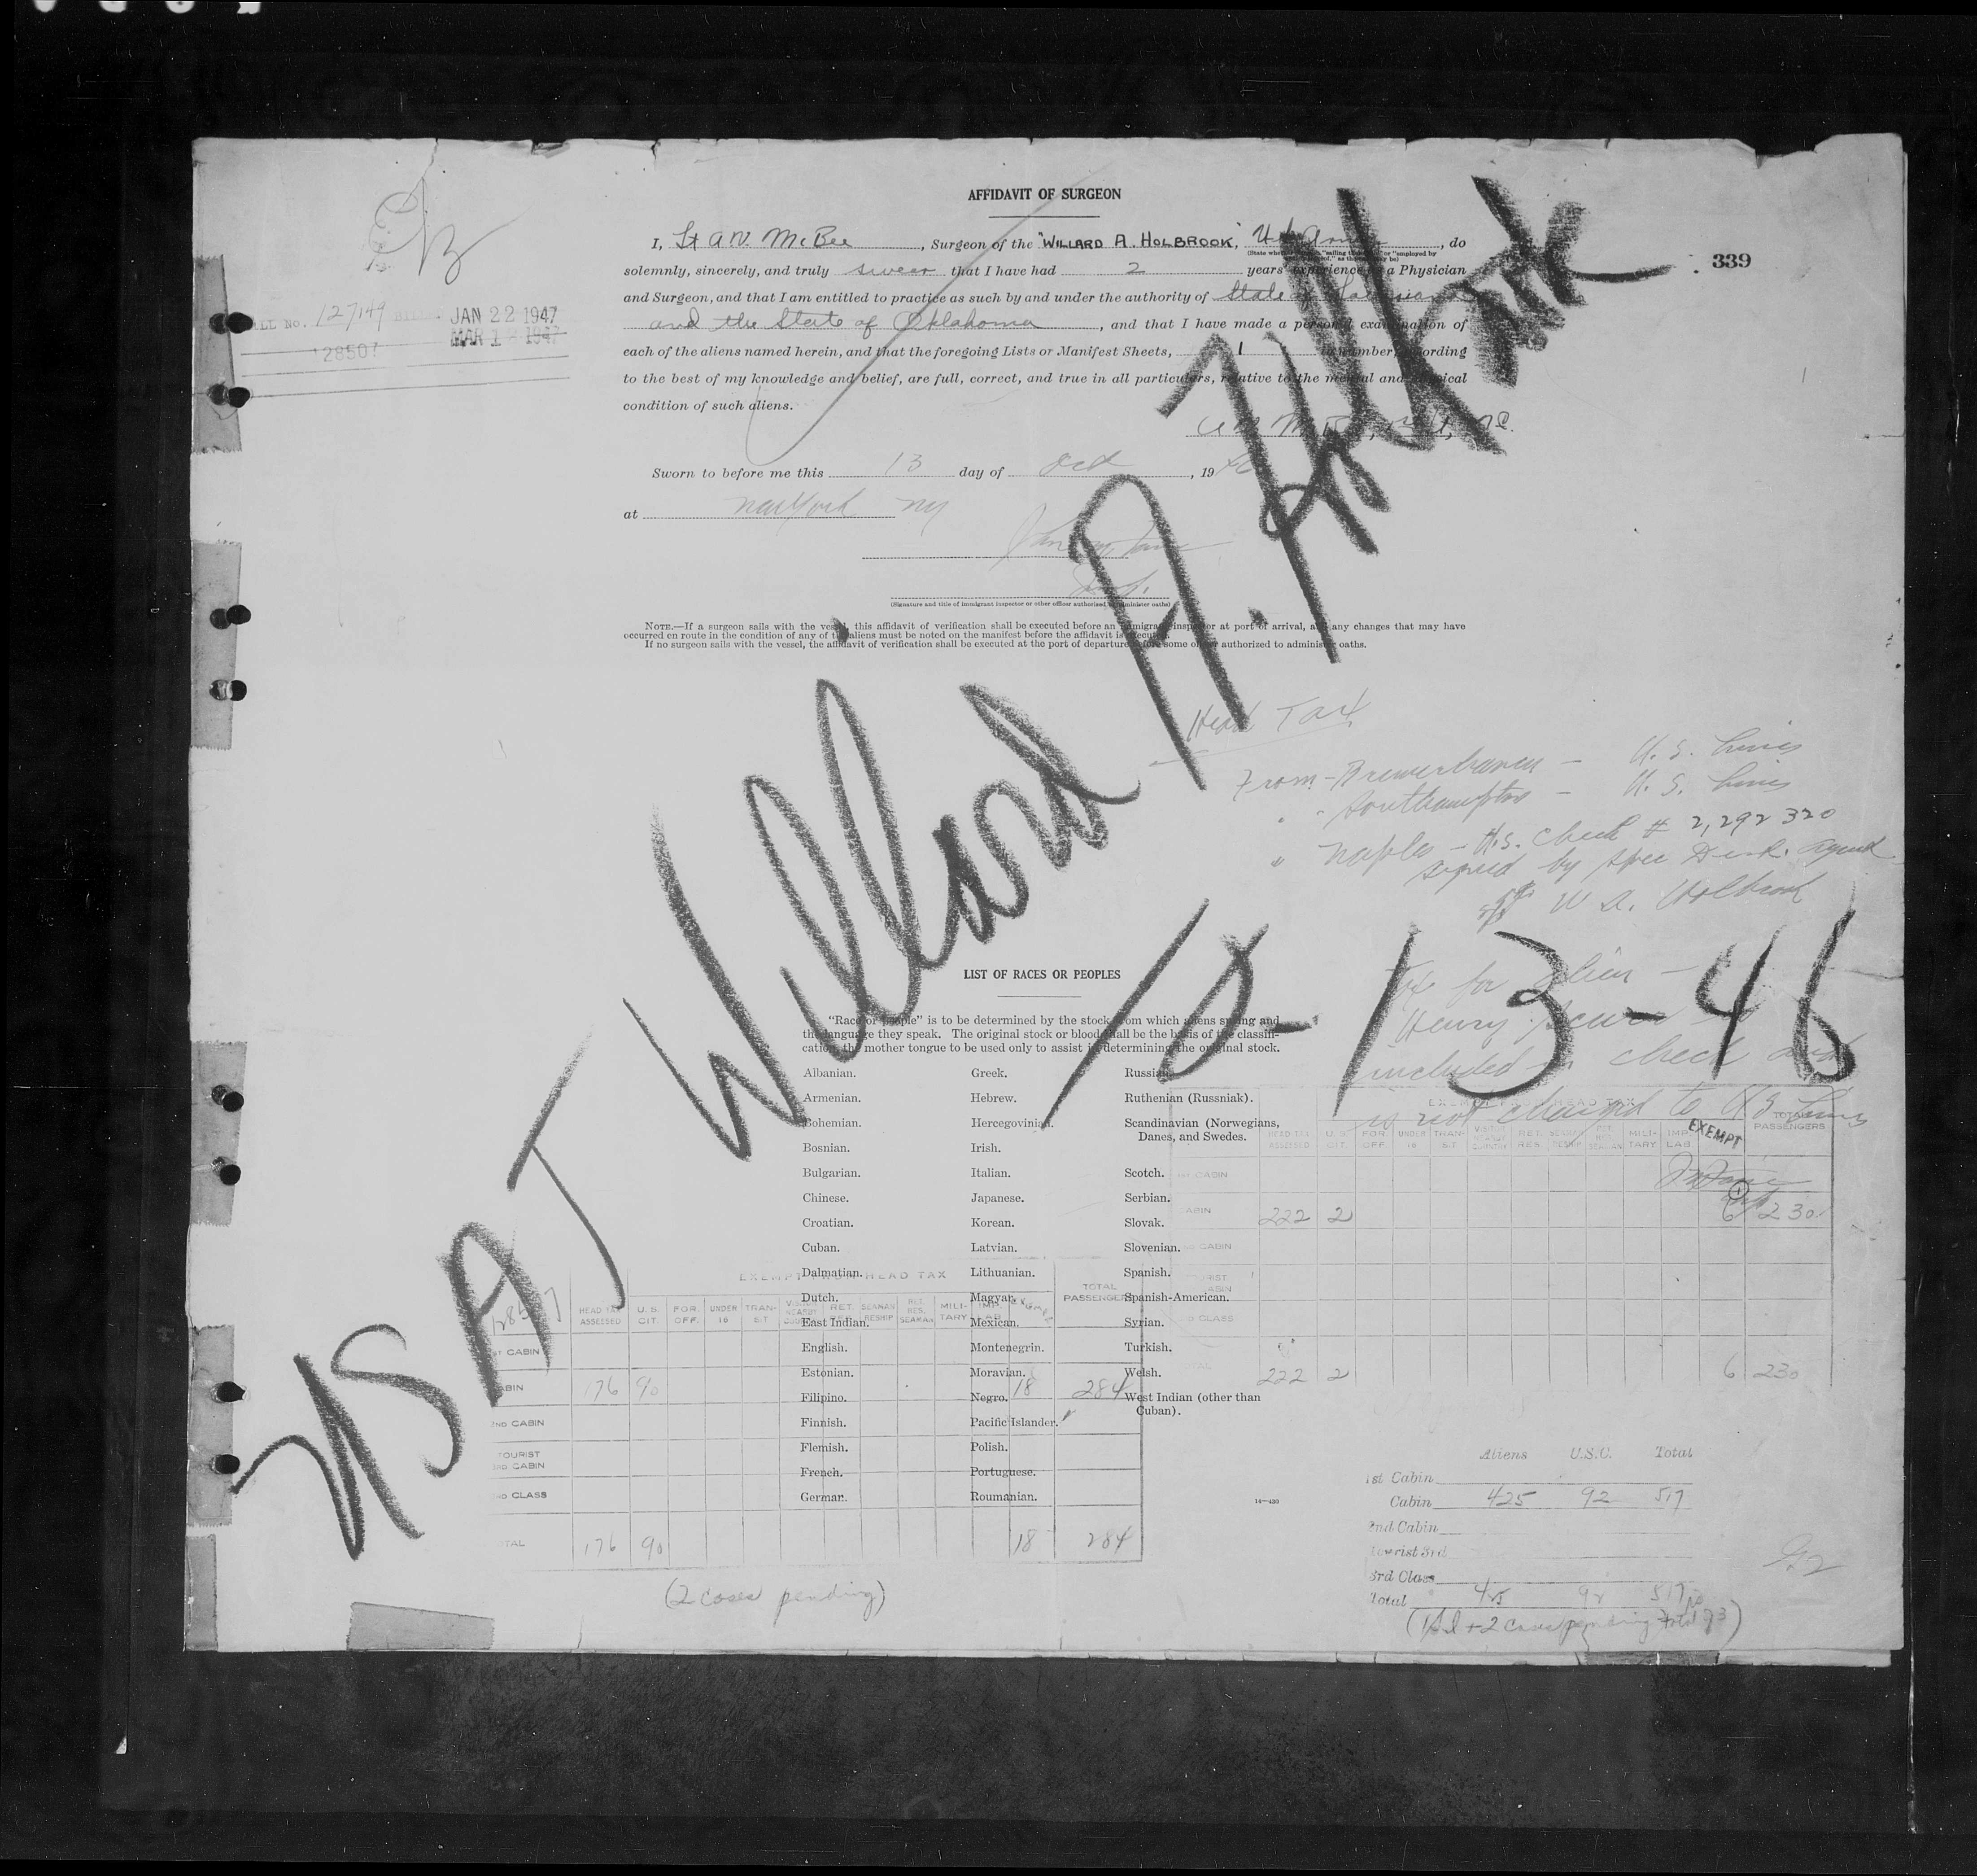 AFFIDAVIT OF SURGEON
339
I, Lt A.W. McBee, Surgeon of the "WILLARD A. HOLBROOK," U.S. Army, do
solemnly, sincerely, and truly swear that I have had 2 years' experience as a Physician
and Surgeon, and that I am entitled to practice as such by and under the authority of State of Louisiana
and the State of Oklahoma, and that I have made a personal examination of
each of the aliens named herein, and that the foregoing Lists or Manifest Sheets, 1 in number, according
to the best of my knowledge and belief, are full, correct, and true in all particulars, relative to the mental and physical
condition of such aliens.
BILL No. 127149 JAN 22 1947
128507 MAR 1 1947
Sworn to before me this 13 day of Oct, 1946
at New York NY
(Signature and title of immigrant inspector or other officer authorized to administer oaths)
NOTE.—If a surgeon sails with the vessel, this affidavit of verification shall be executed before an immigrant inspector at port of arrival, and any changes that may have
occurred en route in the condition of any of the aliens must be noted on the manifest before the affidavit is executed.
If no surgeon sails with the vessel, the affidavit of verification shall be executed at the port of departure before some officer authorized to administer oaths.
USAT Willard A. Holbrook
10-13-46
Head Tax
From - Bremerhaven - U.S. Lines
" - Southampton - U.S. Lines
" Naples - U.S. Check # 2,292 320
signed by Spec Disb. Agent
W A. Holbrook
Tax for alien -
Henry
included in check and
is not charged to US Lines
LIST OF RACES OR PEOPLES
"Race or people" is to be determined by the stock from which aliens spring and
the language they speak. The original stock or blood shall be the basis of the classifi-
cation, the mother tongue to be used only to assist in determining the original stock.
Albanian. Greek. Russian.
Armenian. Hebrew. Ruthenian (Russniak).
Bohemian. Hercegovinian. Scandinavian (Norwegians,
Danes, and Swedes.
Bosnian. Irish.
Bulgarian. Italian. Scotch.
Chinese. Japanese. Serbian.
Croatian. Korean. Slovak.
Cuban. Latvian. Slovenian.
Dalmatian. Lithuanian. Spanish.
Dutch. Magyar. Spanish-American.
East Indian. Mexican. Syrian.
English. Montenegrin. Turkish.
Estonian. Moravian. Welsh.
Filipino. Negro. West Indian (other than
Cuban).
Finnish. Pacific Islander.
Flemish. Polish.
French. Portuguese.
German. Roumanian.
14—430
EXEMPT FROM HEAD TAX
HEAD TAX ASSESSED U.S. CIT. FOR. OFF. UNDER 16 TRAN-SIT VISITOR NEARBY COUNTRY RET. RES. SEAMAN RESHIP RET. RES. SEAMAN MILI-TARY IMP. LAB. EXEMPT TOTAL PASSENGERS
1ST CABIN
CABIN 222 2 6 230
2ND CABIN
TOURIST
3RD CABIN
3RD CLASS
TOTAL 222 2 6 230
128507
EXEMPT FROM HEAD TAX
HEAD TAX ASSESSED U.S. CIT. FOR. OFF. UNDER 16 TRAN-SIT VISITOR NEARBY COUNTRY RET. RES. SEAMAN RESHIP RET. RES. SEAMAN MILI-TARY IMP. LAB. EXEMPT TOTAL PASSENGERS
1ST CABIN
CABIN 176 90 18 284
2ND CABIN
TOURIST
3RD CABIN
3RD CLASS
TOTAL 176 90 18 284
(2 cases pending)
Aliens U.S.C. Total
1st Cabin
Cabin 425 92 517
2nd Cabin
Tourist 3rd
3rd Class
Total 425 92 517